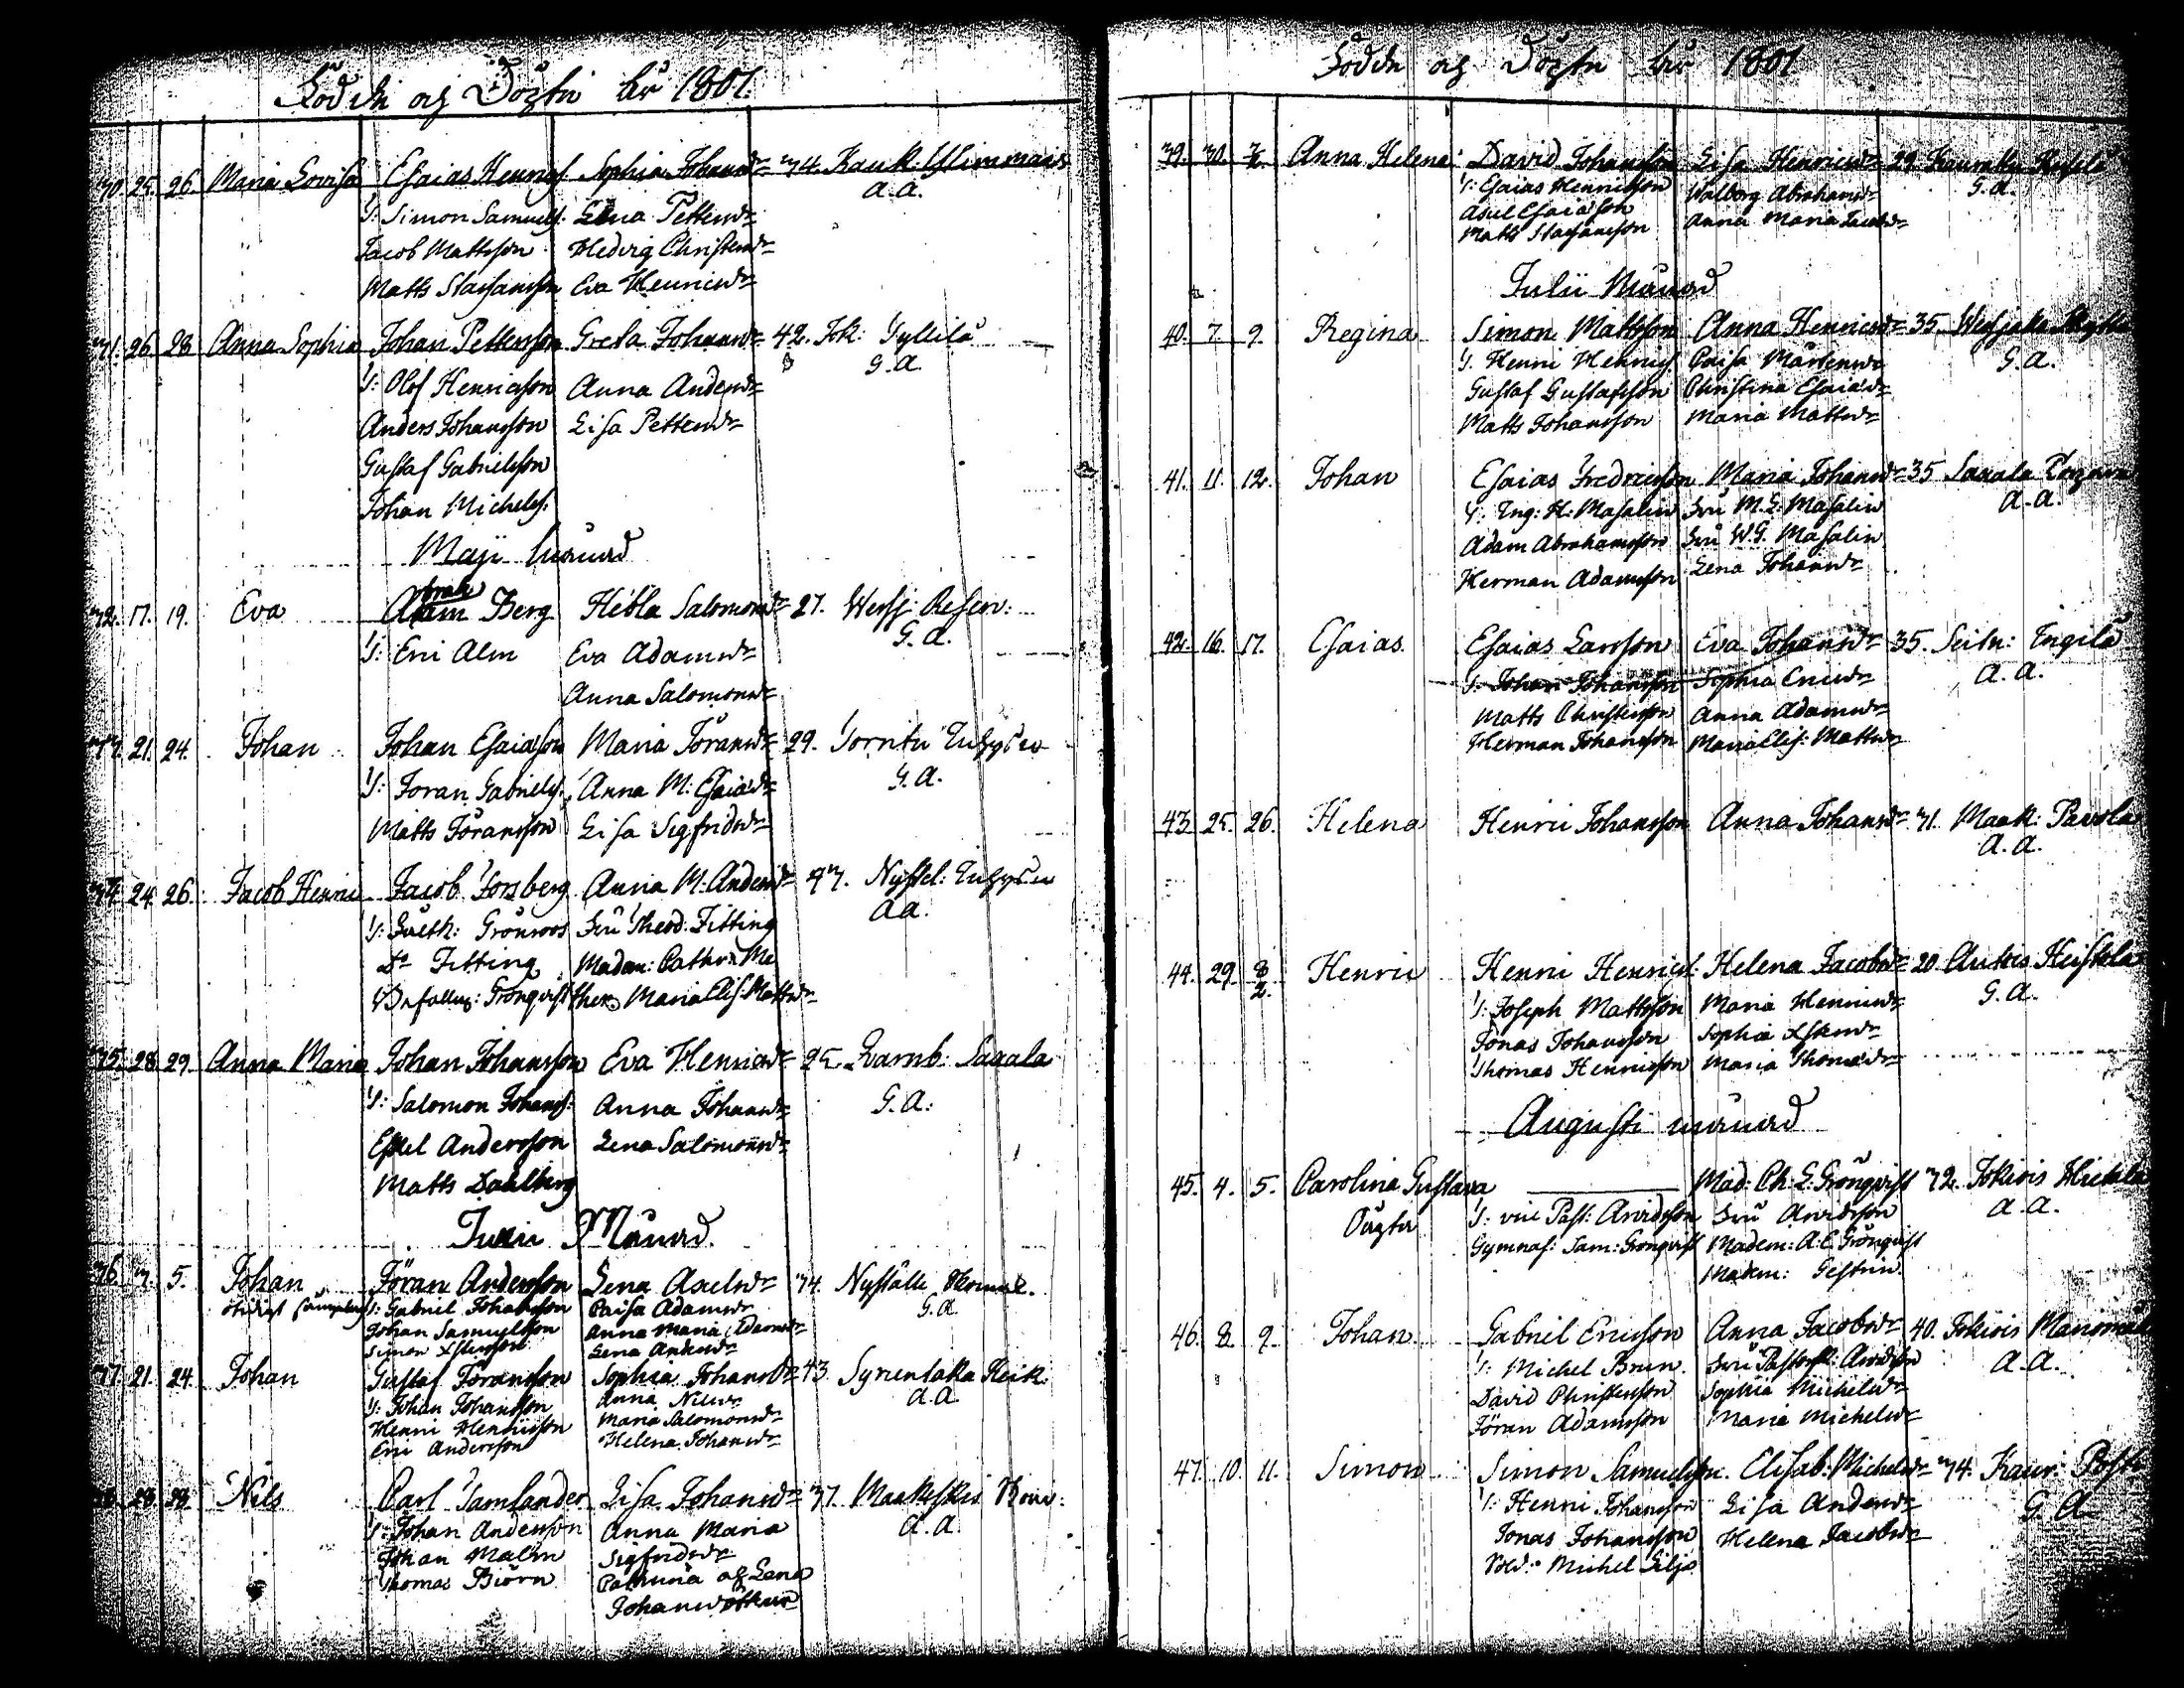 Födde och Döpte år 1801.
30. 25. 26. Maria Lovisa Esaias Henrics. Sophia Johansdr 34. Kauk. Ylimmais
a.a.
T: Simon Samuels. Lena Pettersdr
Jacob Mattsson Hedvig Christersdr
Matts Staffansson Eva Henricsdr
31. 26. 28. Anna Sophia Johan Pettersson Greta Johansdr 42. Jok: Gyltilä
G.A.
T: Olof Henricsson Anna Andersdr
Anders Johansson Lisa Pettersdr
Gustaf Gabrielsson
Johan Michels.
Maji Månad
32. 17. 19. Eva Abraham Berg Hebla Salomonsdr 27. Wersj.
G.A.
T: Eric Alm Eva Adamsdr
Anna Salomonsdr
33. 21. 24. Johan Johan Esaiasson Maria Jöransdr 29.
G.A.
T: Jöran Gabriels. Anna M: Esaiadr
Matts Jöransson Lisa Sigfridsdr
34. 24. 26. Jacob Henric Jacob Forsberg Anna M: Andersdr
a.a.
T: Grönroos Fru Theod: Fitting
Do Fitting Madem: Cathr.
Grönqvist Maria Elis: Mattsdr
35. 28. 29. Anna Maria Johan Johansson Eva Henricsdr 25. Lamb: Saxala
G.A.
T: Salomon Johans: Anna Johansdr
Eskel Andersson Lena Salomonsdr
Matts Daalberg
Junii Månad.
36. 3. 5. Johan Jöran Andersson Lena Axelsdr 34.
G.A.
T: Gabriel Johansson Caisa Adamsdr
Johan Samuelsson Anna Maria Adamsdr
Simon Lena Andersdr
37. 21. 24. Johan Gustaf Jöransson Sophia Johansdr 43. Syrentaka Heik.
a.a
T: Johan Johansson Anna Nilsdr
Henric Henricsson Maria Salomonsdr
Eric Andersson Helena Johansdr
38. 28. 29. Nils Carl Tamlander Lisa Johansdr 37.
a.a
T: Johan Andersson Anna Maria
Johan Malm Sigfridsdr
Thomas Björn Catharina och Lena
Johansdöttrar
Födde och Döpte år 1801
39. 30. Anna Helena David Johansson Lisa Henricsdr 29.
G.A.
T: Esaias Henricsson Walborg Abrahamsdr
Axel Esaiasson Anna Maria
Matts Staffansson
Julii Månad
40. 7. 9. Regina Simon Mattsson Anna Henricsdr 35.
G.A.
T. Henric Henrics Caisa Mårtensdr
Gustaf Gustafsson Christina Esaiadr
Matts Johansson Maria Mattsdr
41. 11. 12. Johan Esaias Fredricsson Maria Johansdr 35 Saxala
a.a.
T: H: Masalin Fru M.E: Masalin
Adam Abrahamsson Fru W.G. Masalin
Herman Adamsson Lena Johansdr
42. 16. 17. Esaias Esaias Larsson Eva Johansdr 35. Ingilä
a.a.
T: Johan Johansson Sophia Ericsdr
Matts Christersson Anna Adamsdr
Herman Johansson Maria Elis: Mattsdr
43. 25. 26. Helena Henric Johansson Anna Johansdr 31. Maak: Pavola
a.a.
44. 29. 8/2. Henric Henric Henrics. Helena Jacobsdr 20 Autois Heiskala
G.A.
T: Joseph Mattsson Maria Henricsdr
Jonas Johansson Sophia Eskelsdr
Thomas Henricsson Maria Thomasdr
Augusti månad
45. 4. 5. Carolina Gustava Mad: Ch: E: Grönqvist 32. Jokiois Hietala
Oägta T: vice Past: Arvidsson Fru Arvidsson a.a.
Gymnas: Sam: Grönqvist Madem: A:C. Grönqvist
Madem: Gestrin.
46. 8. 9. Johan Gabriel Ericsson Anna Jacobsdr 40. Jokiois
T: Michel Brun Fru Pastorsk: Arvidsson a.a.
David Christersson Sophia Michelsdr
Jöran Adamsson Maria Michelsdr
47. 10. 11. Simon Simon Samuelsson. Elisab: Michelsdr 34. Kauv:
T: Henric Johansson Lisa Andersdr G.A
Jonas Johansson Helena Jacobsdr
Sold: Michel Lilja